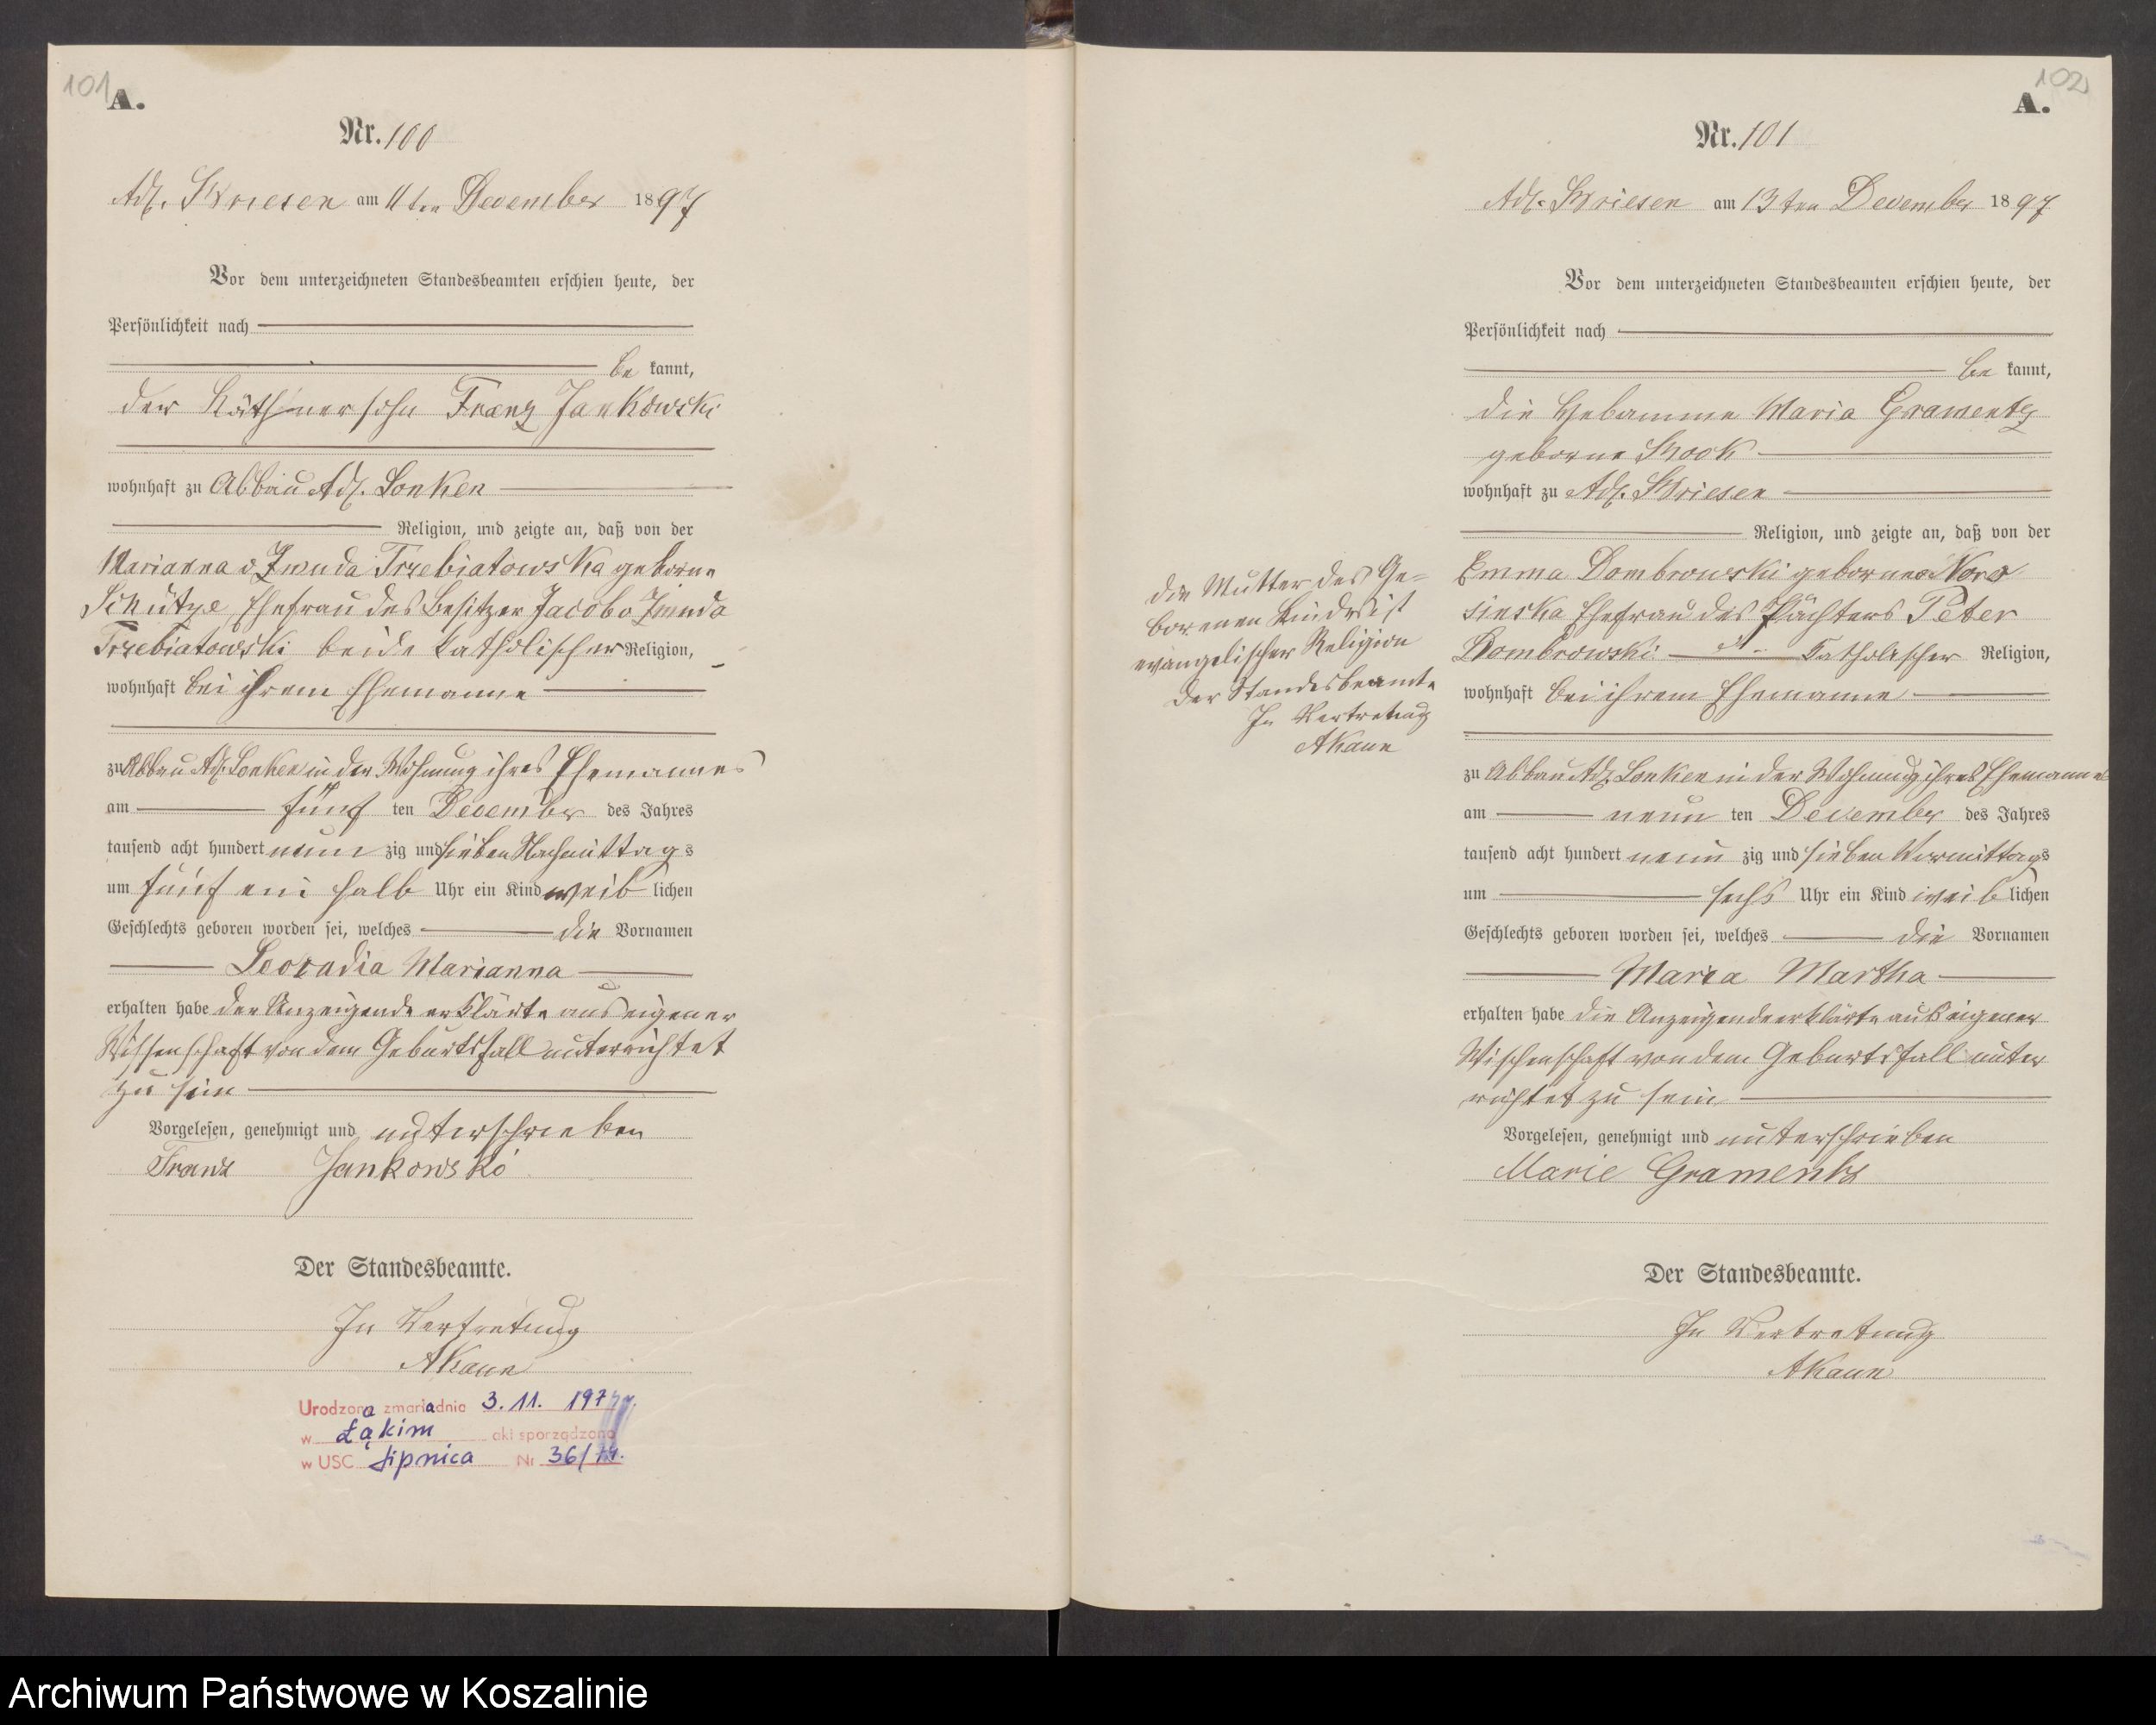 101
A.
Nr. 100
Adl. Briesen am 11ten December 1897
Vor dem unterzeichneten Standesbeamten erschien heute, der
Persönlichkeit nach
be kannt,
der Käthnersohn Franz Jankowski
wohnhaft zu Abbau Adl. Lonken
Religion, und zeigte an, daß von der
Marianna v Zmuda Trzebiatowska geborne
Schütze Ehefrau des Besitzer Jacob v Zmuda
Trzebiatowski beide katholischer Religion,
wohnhaft bei ihrem Ehemanne
zu Abbau Adl. Lonken in der Wohnung ihres Ehemannes
am fünf ten December des Jahres
tausend acht hundert neun zig und sieben Nachmittags
um fünf ein halb Uhr ein Kind weib lichen
Geschlechts geboren worden sei, welches die Vornamen
Leocadia Marianna
erhalten habe der Anzeigende erklärte aus eigener
Wissenschaft von dem Geburtsfall unterrichtet
zu sein
Vorgelesen, genehmigt und unterschrieben
Franz Jankowski
Der Standesbeamte.
In Vertretung
AKaun
Urodzona zmarła dnia 3. 11. 1974 r.
w Łąkim akt sporządzono
w USC Lipnica Nr 36/74.
102
A.
Nr. 101
Adl. Briesen am 13ten December 1897
Vor dem unterzeichneten Standesbeamten erschien heute, der
Persönlichkeit nach
be kannt,
die Hebamme Maria Gramentz
geborne Spook
wohnhaft zu Adl. Briesen
Religion, und zeigte an, daß von der
Emma Dombrowski geborne
sinska Ehefrau des Pächters Peter
Dombrowski katholischer Religion,
wohnhaft bei ihrem Ehemanne
zu Abbau Adl. Lonken in der Wohnung ihres Ehemannes
am neun ten December des Jahres
tausend acht hundert neun zig und sieben Vormittags
um sechs Uhr ein Kind weib lichen
Geschlechts geboren worden sei, welches die Vornamen
Maria Martha
erhalten habe die Anzeigende erklärte aus eigener
Wissenschaft von dem Geburtsfall unter
richtet zu sein
Vorgelesen, genehmigt und unterschrieben
Marie Gramentz
Der Standesbeamte.
In Vertretung
AKaun
die Mutter des Ge=
borenen Kindes ist
evangelischer Religion
Der Standesbeamte
In Vertretung
AKaun
Archiwum Państwowe w Koszalinie